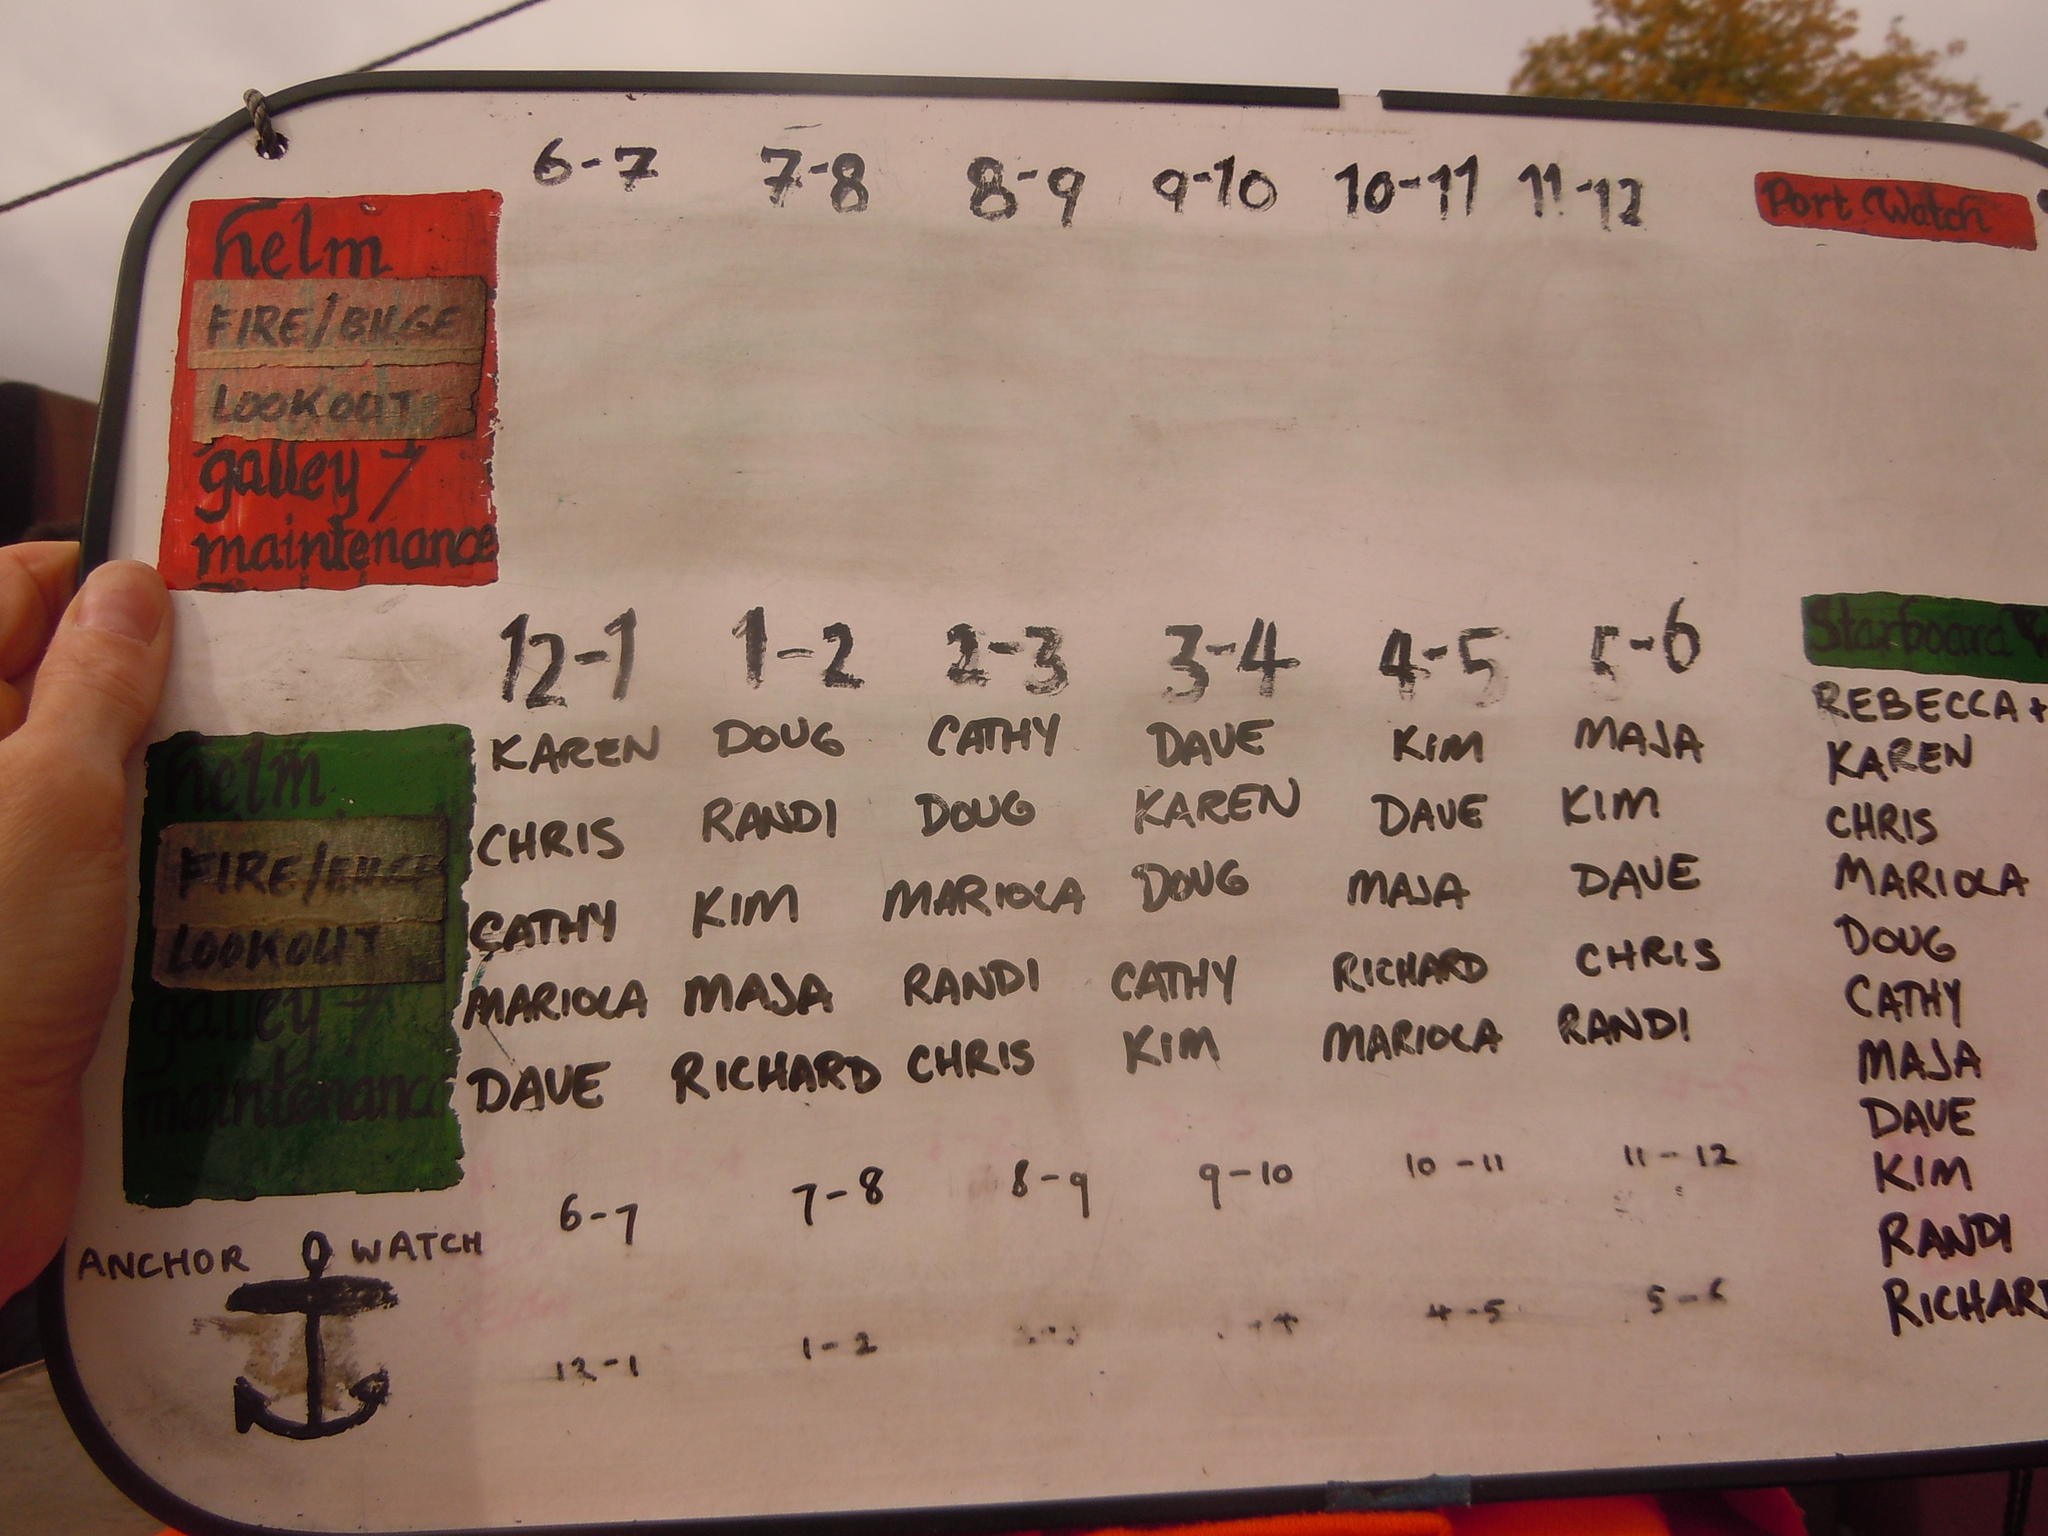 6-7 7-8 8-9 9-10 10-11 11-12 Port Watch
helm
FIRE/BILGE
LOOKOUT
galley 7
maintenance
12-1 1-2 2-3 3-4 4-5 5-6 Starboard
helm KAREN DOUG CATHY DAVE KIM MAJA
FIRE/BILGE CHRIS RANDI DOUG KAREN DAVE KIM
LOOKOUT CATHY KIM MARIOLA DOUG MAJA DAVE
galley 7 MARIOLA MAJA RANDI CATHY RICHARD CHRIS
maintenance DAVE RICHARD CHRIS KIM MARIOLA RANDI
REBECCA +
KAREN
CHRIS
MARIOLA
DOUG
CATHY
MAJA
DAVE
KIM
RANDI
RICHARD
ANCHOR WATCH 6-7 7-8 8-9 9-10 10-11 11-12
12-1 1-2 4-5 5-6